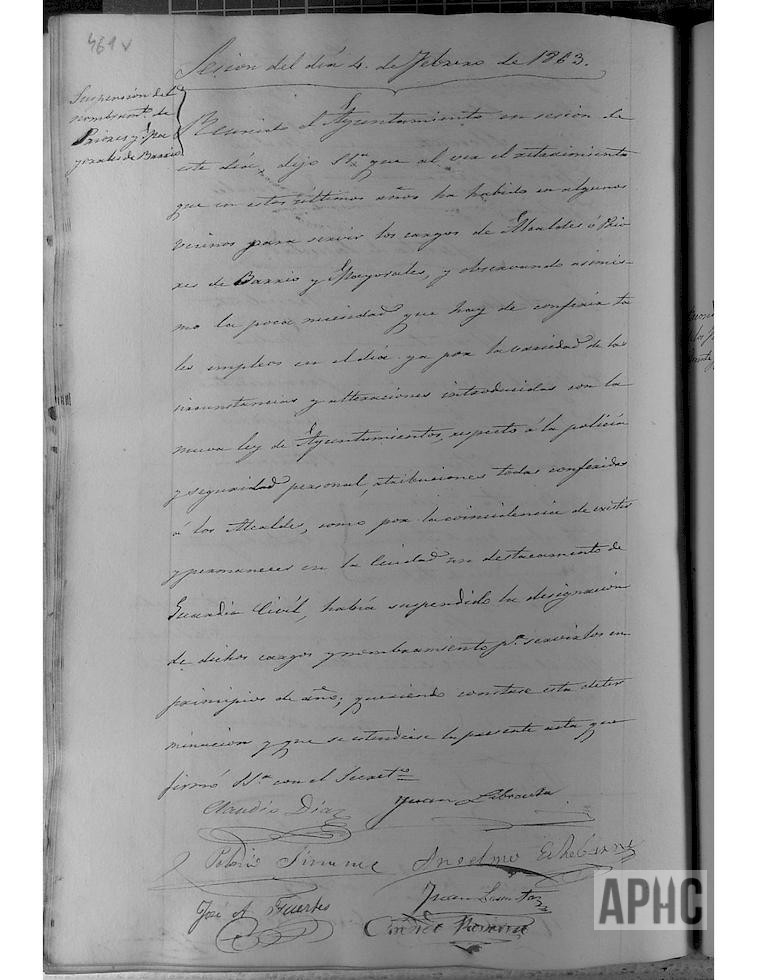 461 v
Sesion del día 4. de Febrero de 1863.
Suspension del
nombramto. de
Priores y Ma
yorales de Barrio
Reunido el Ayuntamiento en sesion de
este día, dijo Sª. que al ver el retraimiento
que en estos últimos años ha habido en algunos
vecinos para servir los cargos de Alcaldes ó Prio
res de Barrio y Mayorales, y observando asimis-
mo la poca necesidad que hay de conferir ta
les empleos en el día ya por la variedad de las
circunstancias y alteraciones introducidas con la
nueva ley de Ayuntamientos, respecto á la policía
y seguridad personal, atribuciones todas conferidas
á los Alcaldes, como por la coincidencia de existir
y permanecer en la Ciudad un destacamento de
Guardia Civil, había suspendido la designación
de dichos cargos y nombramiento pª. servirlos en
principios de año; queriendo constase esta deter
minacion y que se estendiese la presente acta que
firmó Sª. con el Secretº.
Claudio Díaz
Juan
Jimenez
Anselmo
José A. Fuertes
Juan
Navarra
APHC